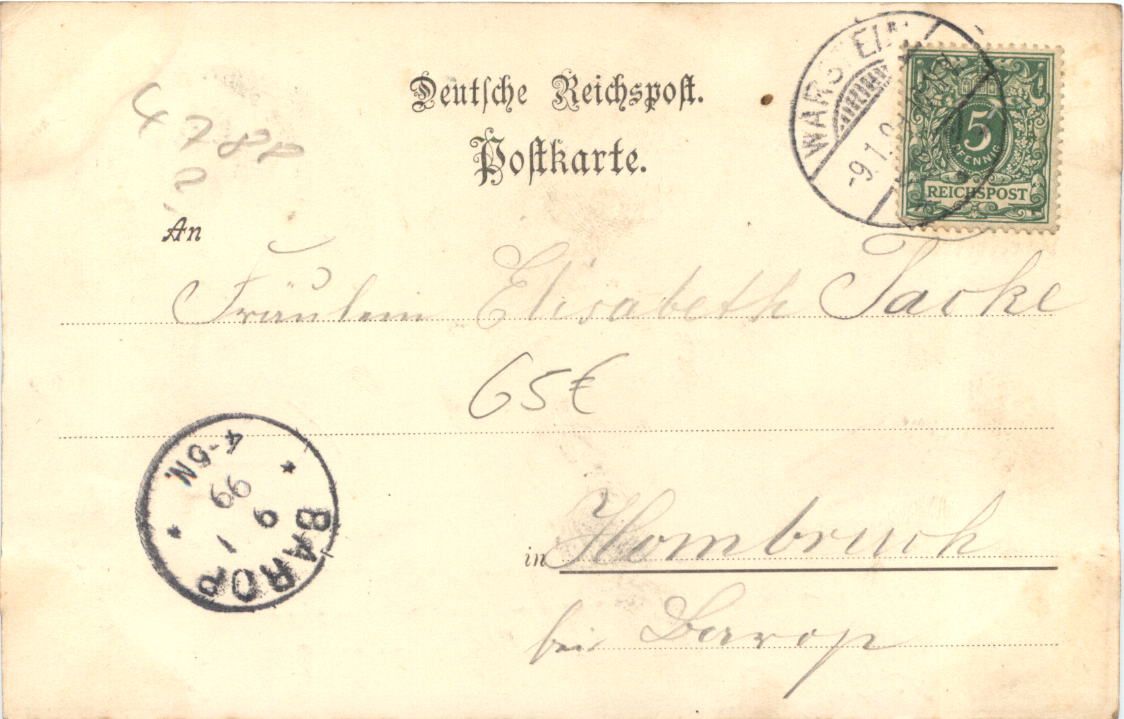 Deutsche Reichspost.
Postkarte.
WARSTEIN
-9.1.9
5
PFENNIG
REICHSPOST
4788
2
An
Fräulein Elisabeth Tacke
65€
4-5N.
99
9
1
BAROP
in Hombruch
bei Barop